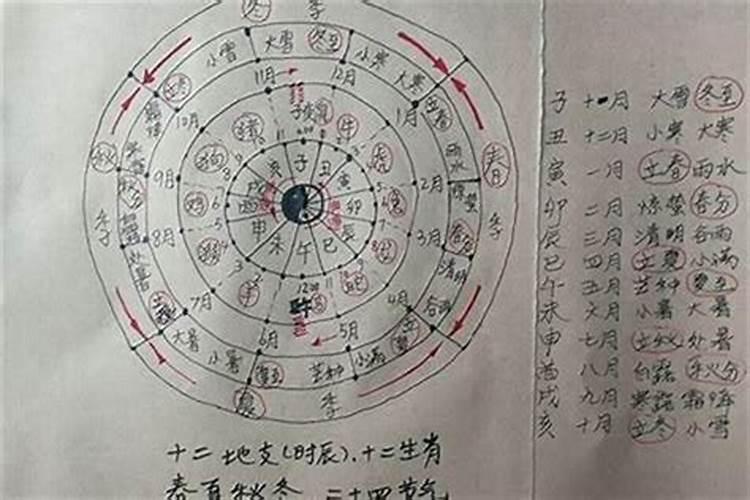 冬 季
小雪 大雪 冬至 小寒 大寒
立冬 立春
11月 12月
10月 1月
子 丑 寅 卯 辰 巳 午 未 申 酉 戌 亥
秋 季
春 季
雨水
惊蛰
春分
清明
谷雨
9月 2月
8月 3月
7月 4月
6月 5月
秋分
处暑
立秋
大暑 小暑 夏至 芒种 小满
季
子 十一月 大雪 冬至
丑 十二月 小寒 大寒
寅 一月 立春 雨水
卯 二月 惊蛰 春分
辰 三月 清明 谷雨
巳 四月 立夏 小满
午 五月 芒种 夏至
未 六月 小暑 大暑
申 七月 立秋 处暑
酉 八月 白露 秋分
戌 九月 寒露 霜降
亥 十月 立冬 小雪
十二地支(时辰)、十二生肖
春夏秋冬 二十四节气